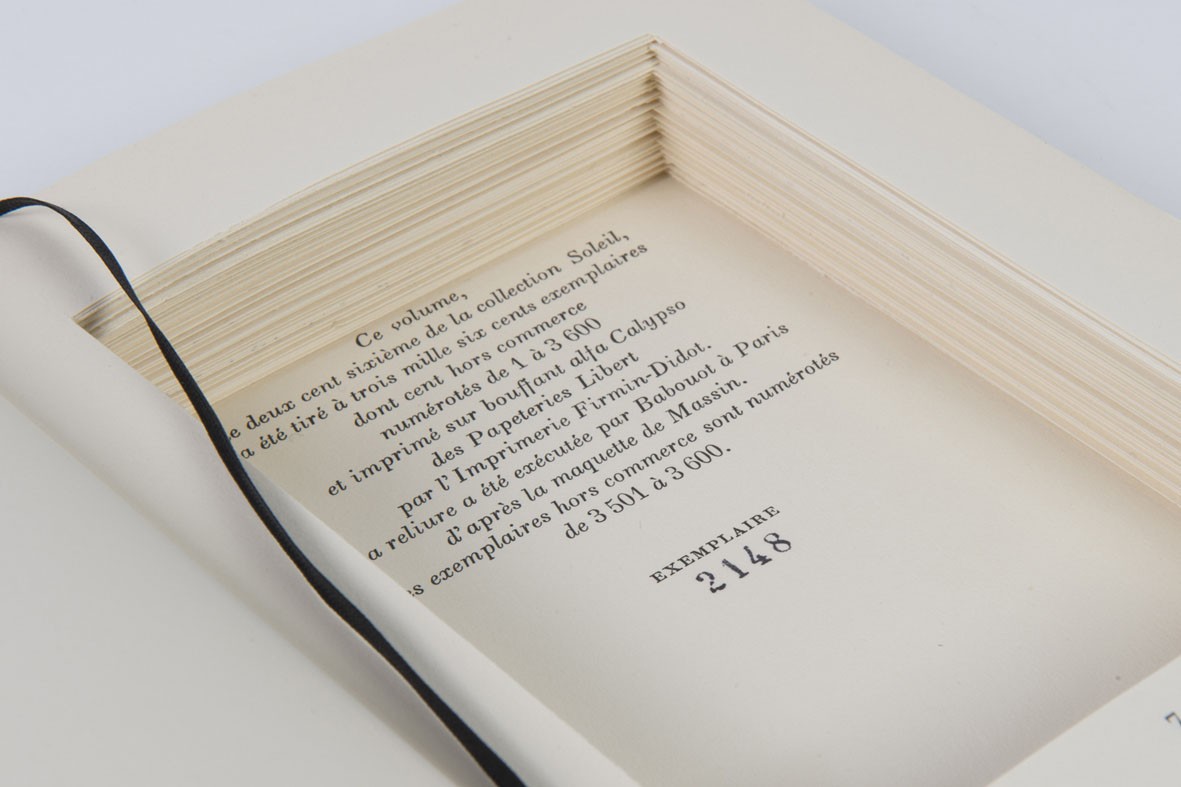 Ce volume,
e deux cent sixième de la collection Soleil,
a été tiré à trois mille six cents exemplaires
dont cent hors commerce
numérotés de 1 à 3 600
et imprimé sur bouffant alfa Calypso
des Papeteries Libert
par l'Imprimerie Firmin-Didot.
a reliure a été exécutée par Babouot à Paris
d'après la maquette de Massin.
es exemplaires hors commerce sont numérotés
de 3 501 à 3 600.
EXEMPLAIRE
2148
7